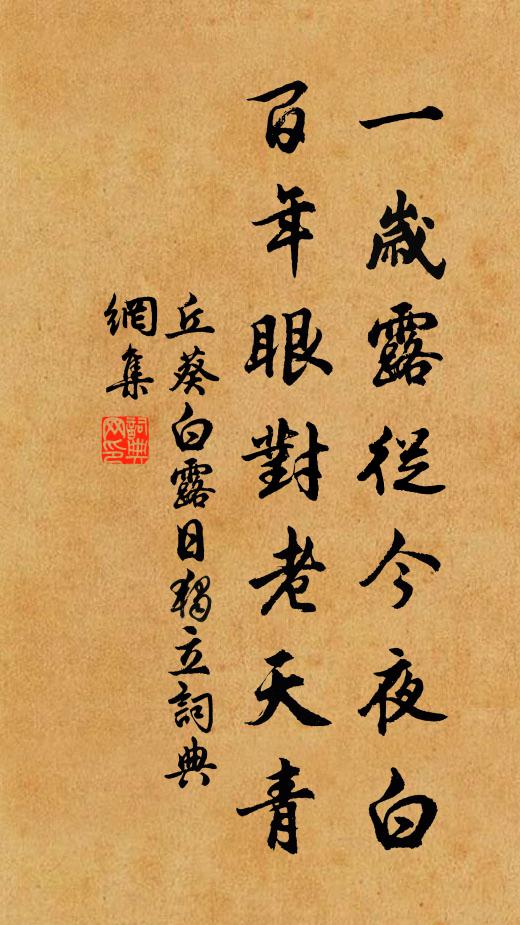 一歲露從今夜白
百年眼對老天青
丘葵白露日獨立詞典
網集
詞典
网印